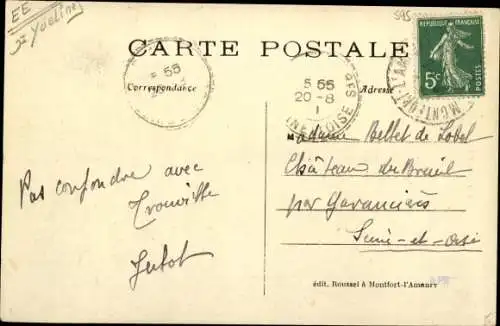 EE
Yvelines
595
CARTE POSTALE
RÉPUBLIQUE FRANÇAISE
5c
POSTES
5 55
5 55
20-8
SNE & OISE
MONTFORT-L'AM
Correspondance
Adresse
Pas confondre avec
Trouville
Jutot
M
Madame Bellet de Lobel
Château du Breuil
par Garancières
Seine-et-Oise
édit. Roussel à Montfort-l'Amaury